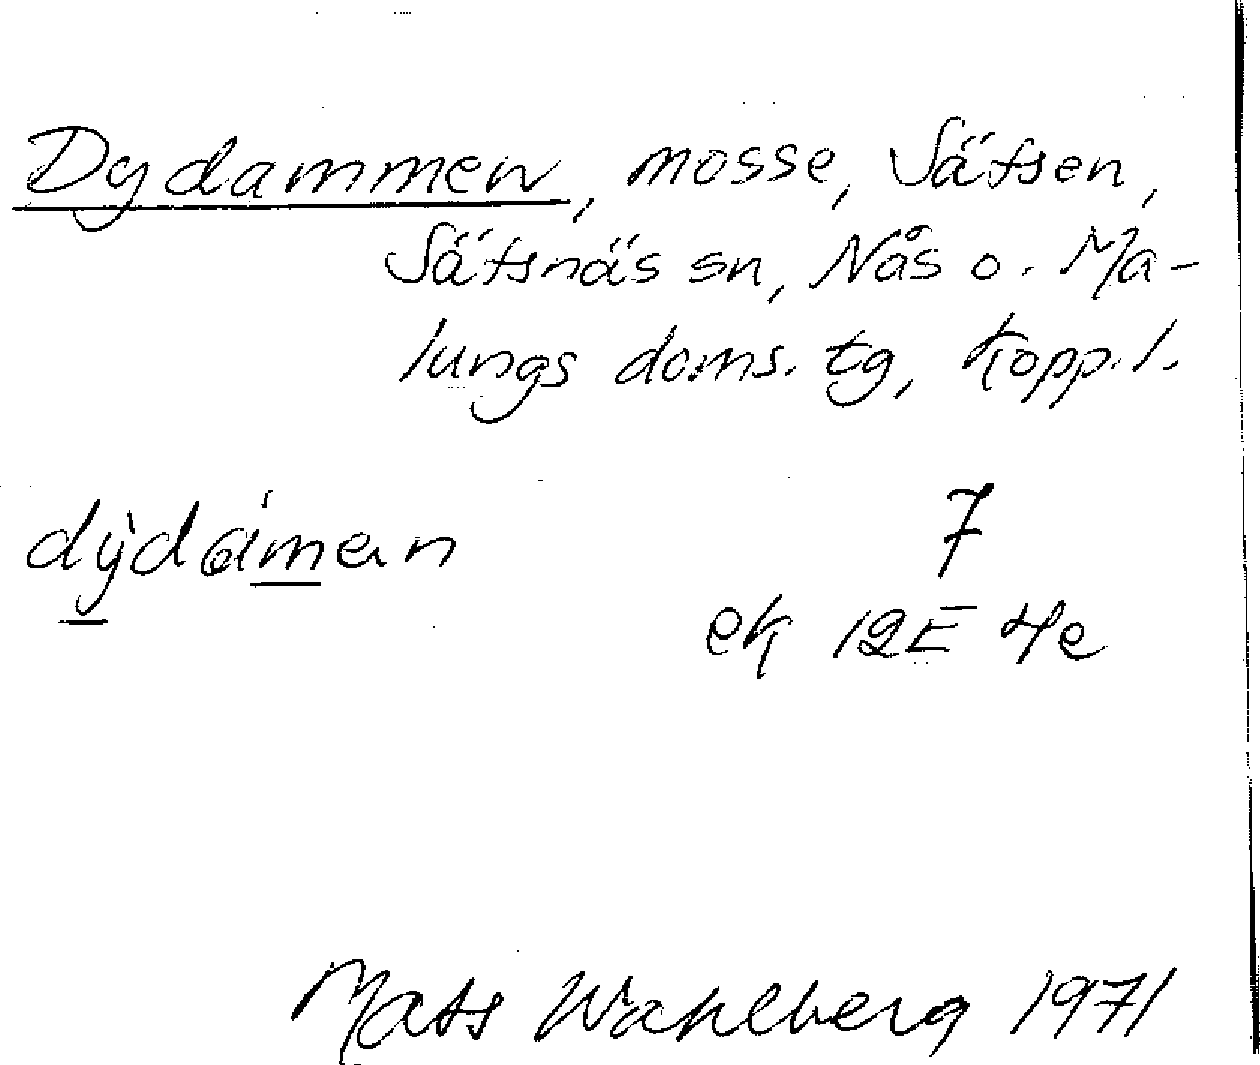 Dydammen, mosse, Sätsen,
Sätsnäs sn, Nås o. Ma-
lungs doms. tg, Kopp.l.
dỳdáman
7
ek 12E 4e
Mats Wahlberg 1971